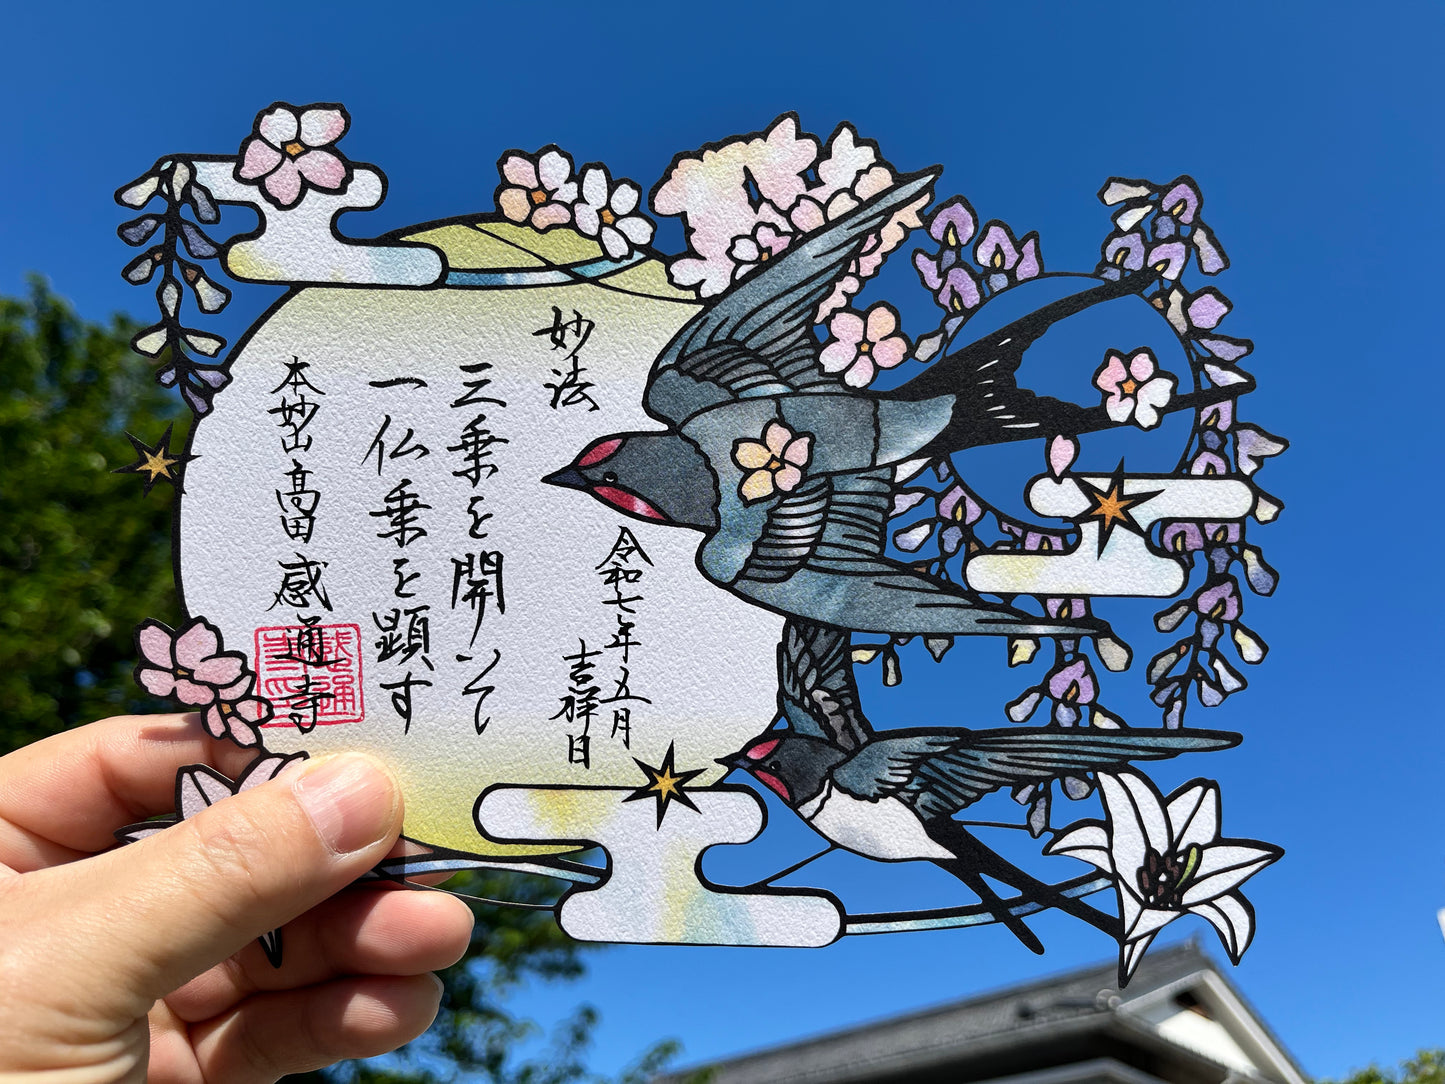 妙法
三乗を開いて
一仏乗を顕す
令和七年五月
吉祥日
本妙山高田感通寺